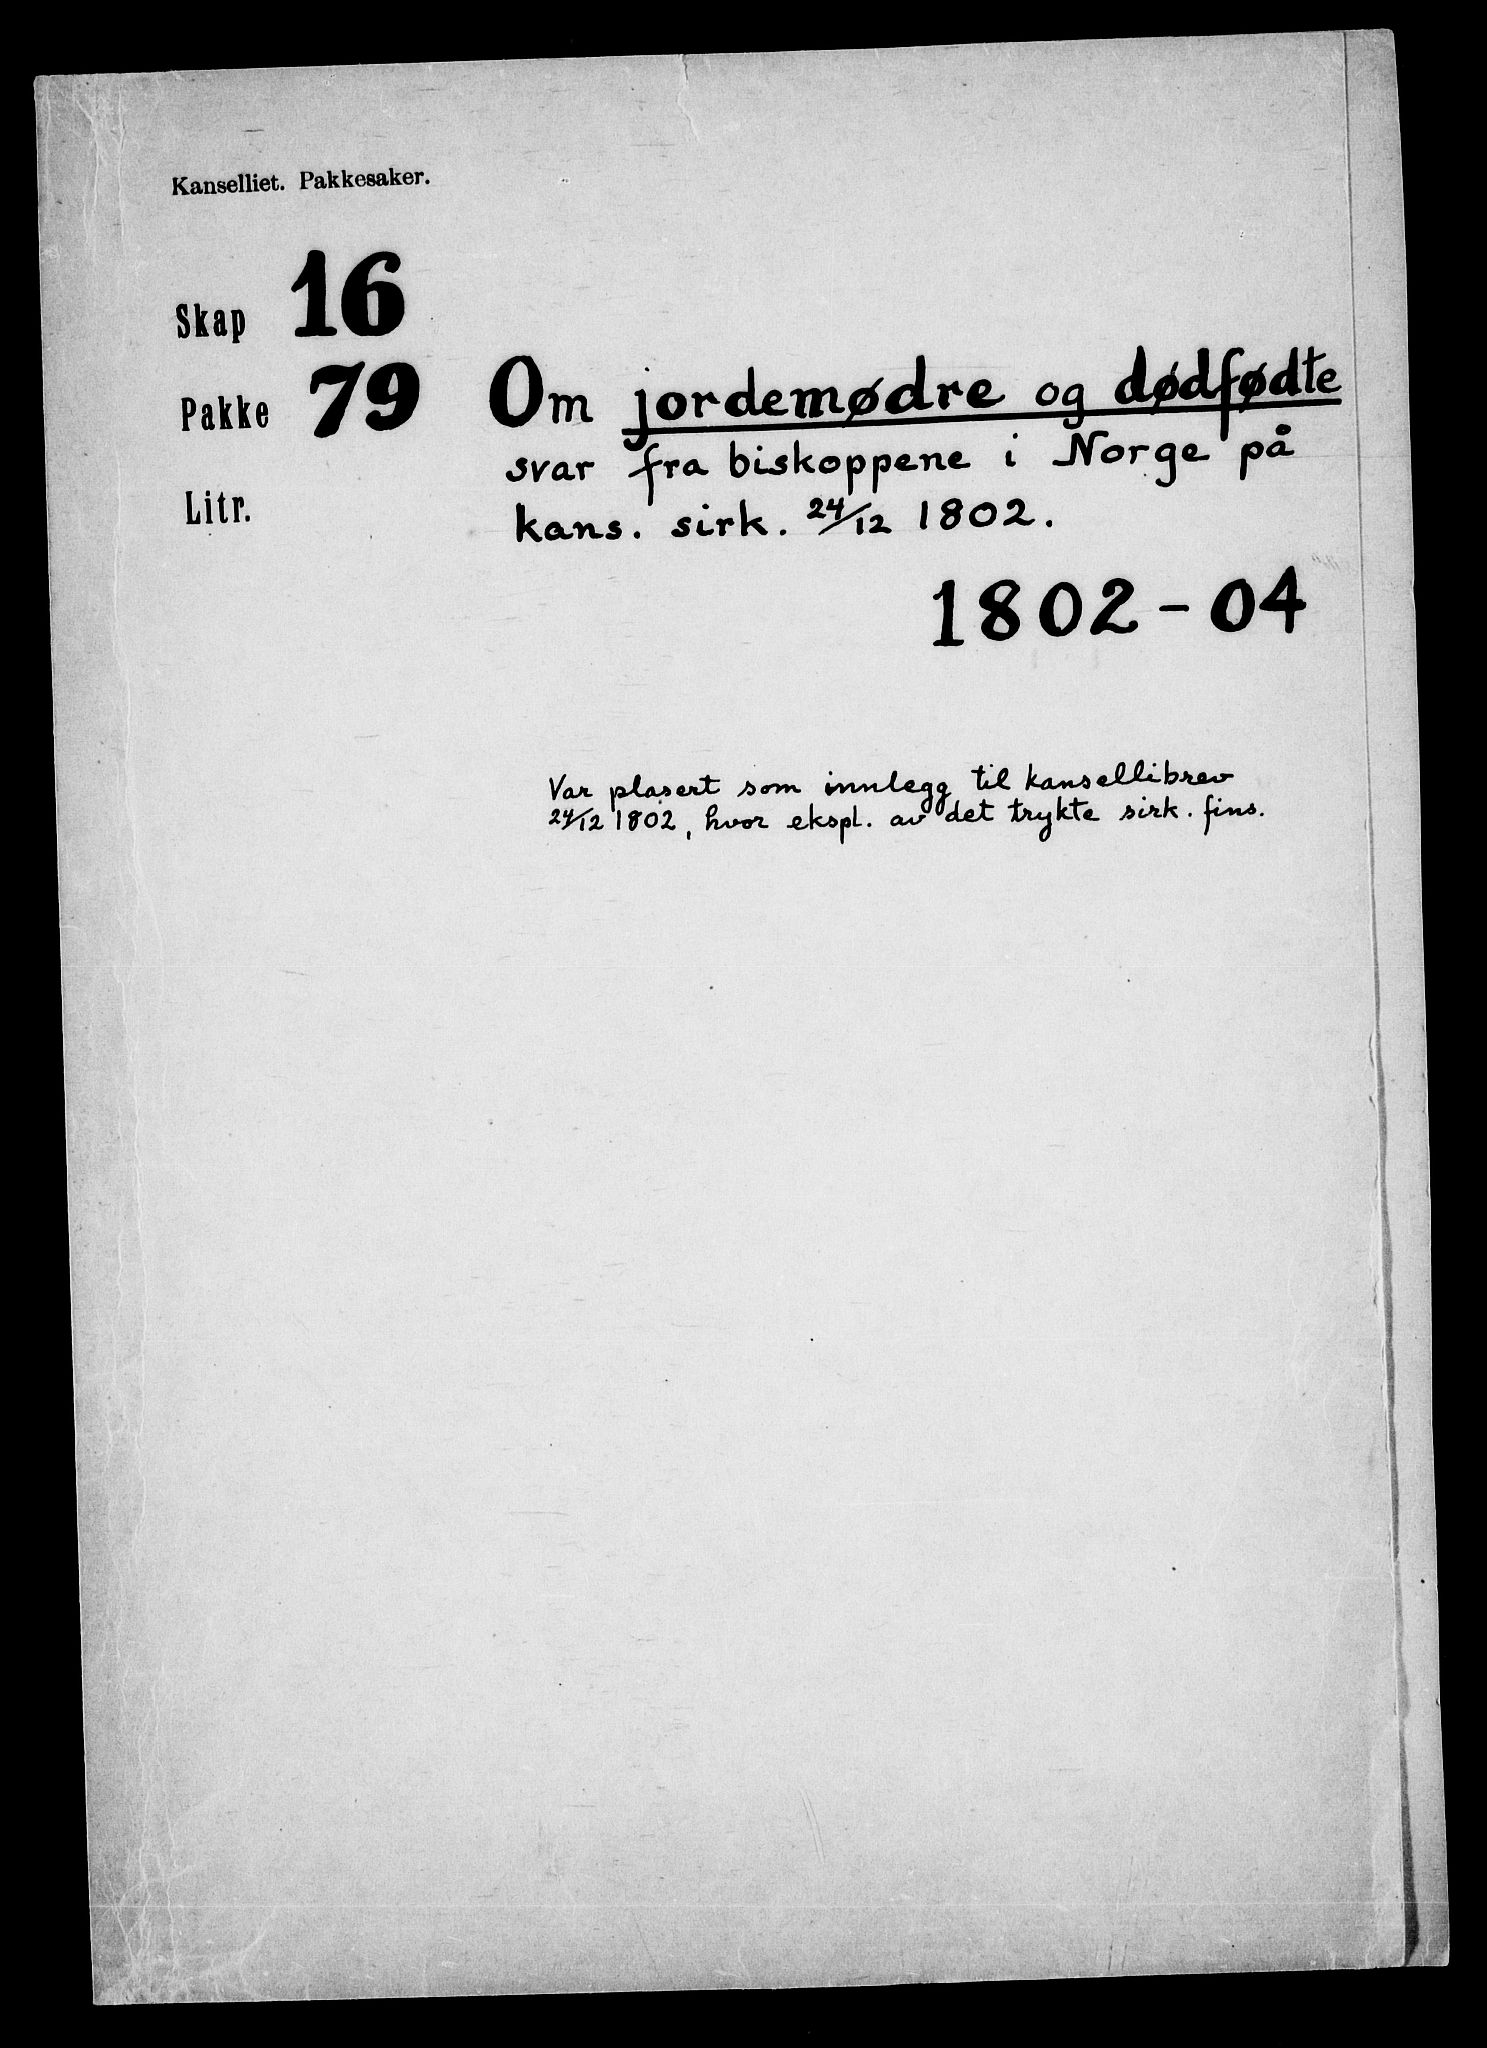 Kanselliet. Pakkesaker.
Skap 16
Pakke 79
Litr.
Om jordemødre og dødfødte
svar fra biskoppene i Norge på
kans. sirk. 24/12 1802.
1802-04
Var plasert som innlegg til kansellibrev
24/12 1802, hvor ekspl. av det trykte sirk. fins.